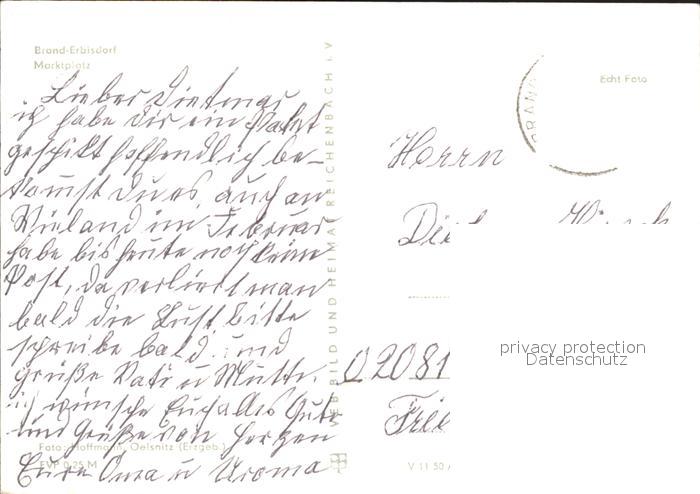 Brand-Erbisdorf
Marktplatz
Echt Foto
BRAND
Lieber Dietmar
ich habe dir ein Paket
geschikt hoffendlich be-
komst du es, auch an
Wieland im Februar
habe bis heute noch kein
Post, da verliert man
bald die Lust, bitte
schreibe bald. und
grüße Vati u Mutti.
ich wünsche Euch alles Gute
und Grüße von Herzen
Eure Oma u Uroma
Herrn
VEB BILD UND HEIMAT REICHENBACH I. V
privacy protection
Datenschutz
Foto: Hoffmann, Oelsnitz (Erzgeb.)
EVP 0,25 M
V 11 50